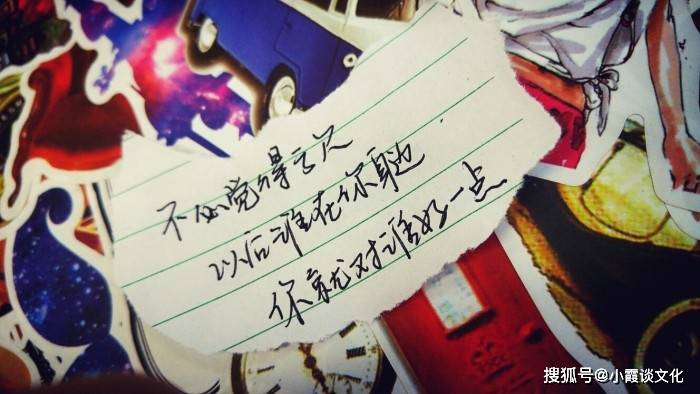 不必觉得亏欠
以后谁在你身边
你就对谁好一点
搜狐号@小霞谈文化